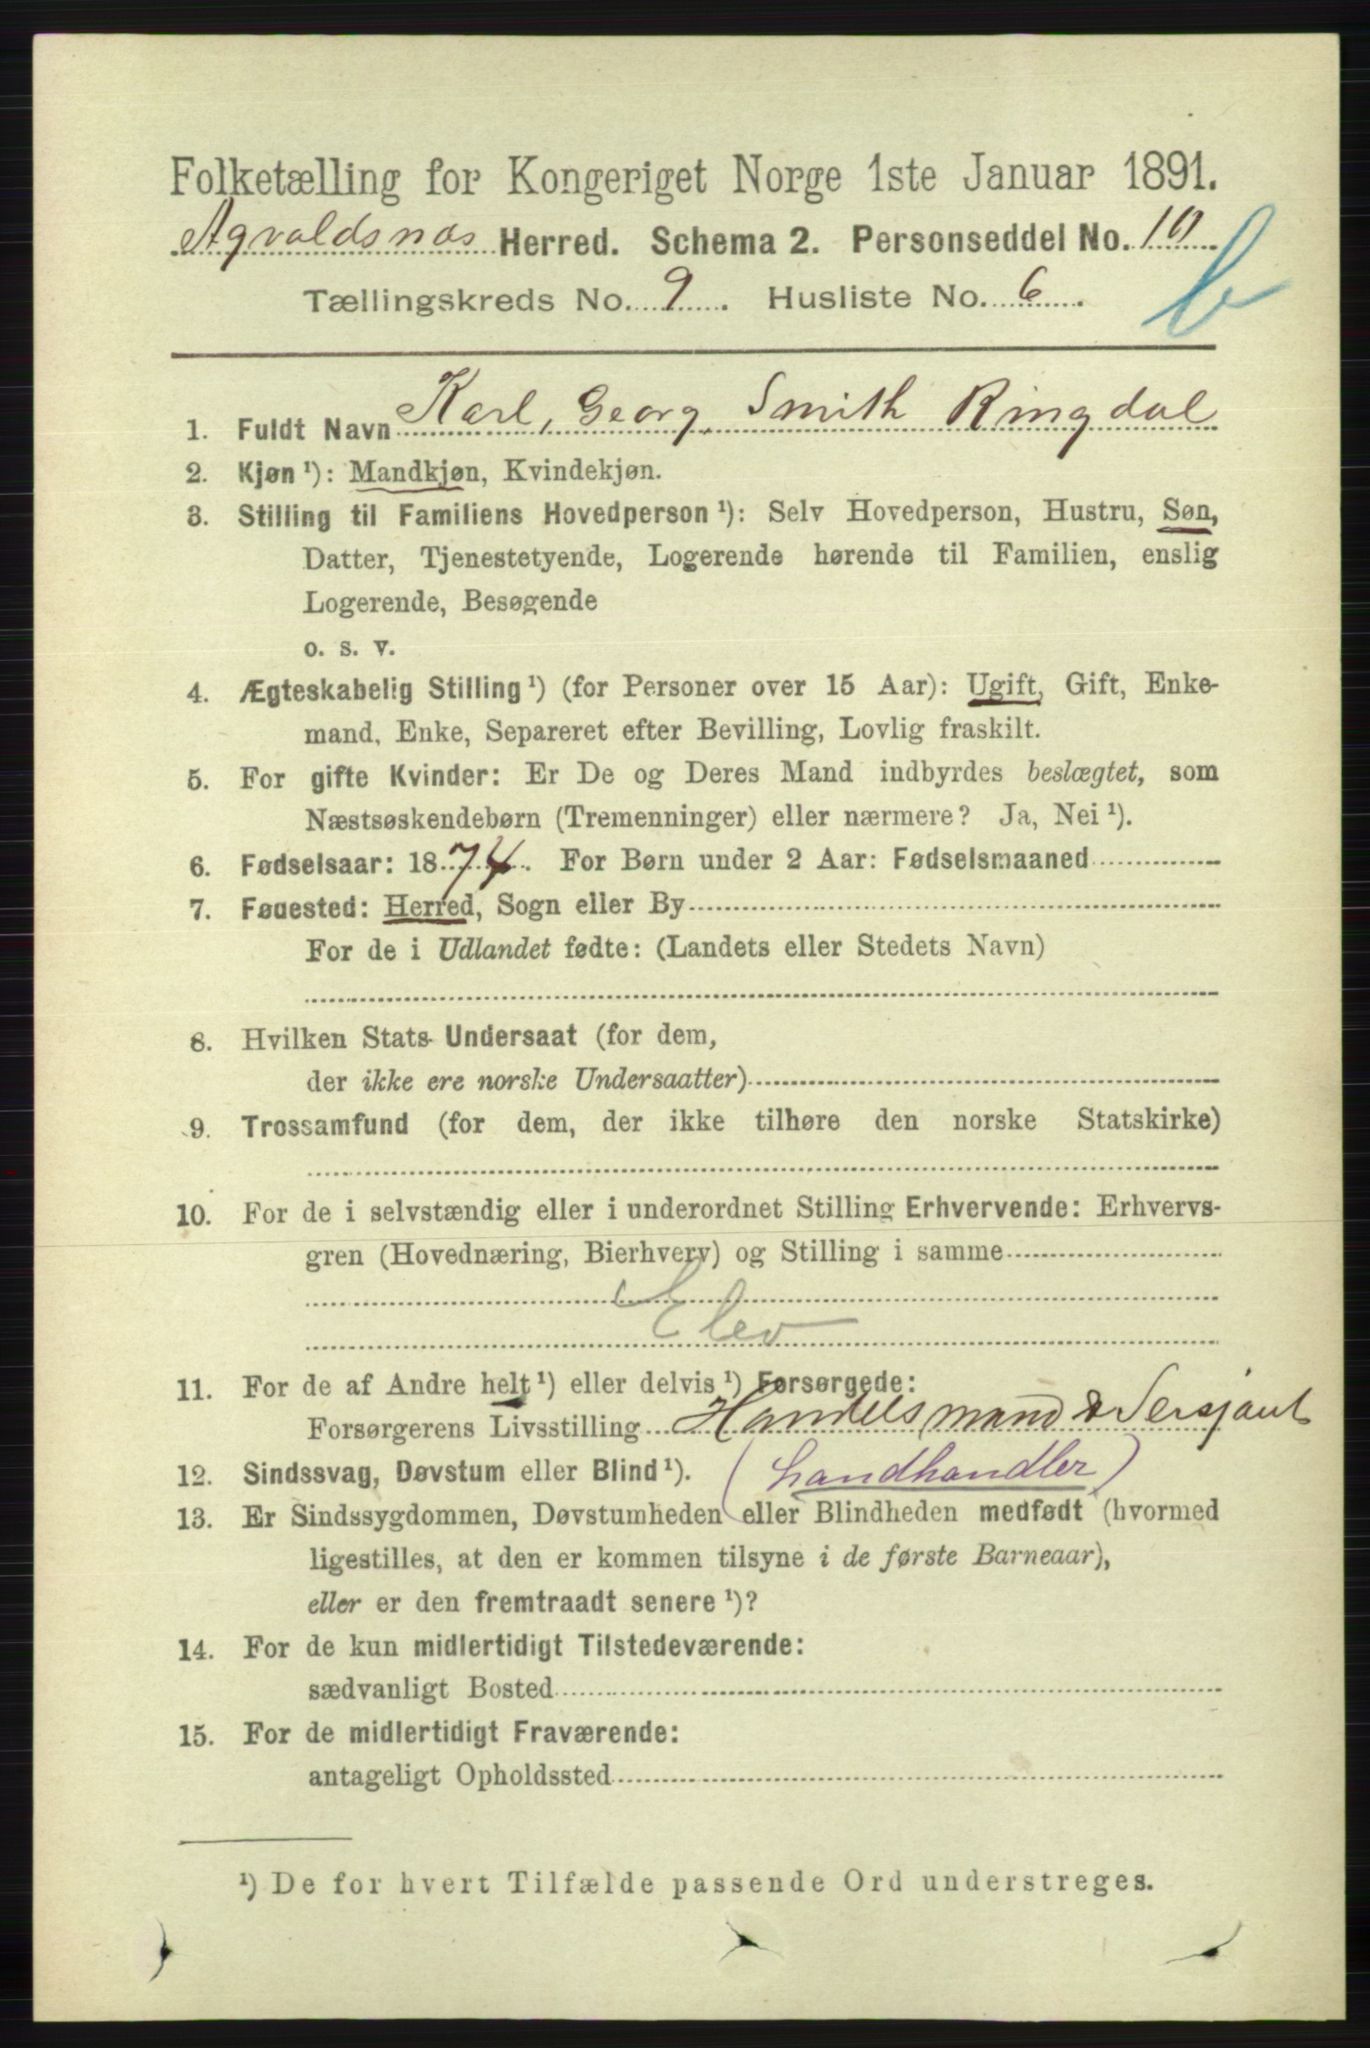 Folketælling for Kongeriget Norge 1ste Januar 1891.
Agvaldsnæs Herred. Schema 2. Personseddel No. 10.
b
Tællingskreds No. 9. Husliste No. 6.
1. Fuldt Navn Karl, Georg, Smith Ringdal
2. Kjøn ¹): Mandkjøn, Kvindekjøn.
3. Stilling til Familiens Hovedperson ¹): Selv Hovedperson, Hustru, Søn,
Datter, Tjenestetyende, Logerende hørende til Familien, enslig
Logerende, Besøgende
o. s. v.
4. Ægteskabelig Stilling ¹) (for Personer over 15 Aar): Ugift, Gift, Enke-
mand, Enke, Separeret efter Bevilling, Lovlig fraskilt.
5. For gifte Kvinder: Er De og Deres Mand indbyrdes beslægtet, som
Næstsøskendebørn (Tremenninger) eller nærmere? Ja, Nei ¹).
6. Fødselsaar: 1874. For Børn under 2 Aar: Fødselsmaaned
7. Fødested: Herred, Sogn eller By
For de i Udlandet fødte: (Landets eller Stedets Navn)
8. Hvilken Stats Undersaat (for dem,
der ikke ere norske Undersaatter)
9. Trossamfund (for dem, der ikke tilhøre den norske Statskirke)
10. For de i selvstændig eller i underordnet Stilling Erhvervende: Erhvervs-
gren (Hovednæring, Bierhverv) og Stilling i samme
Elev
11. For de af Andre helt ¹) eller delvis ¹) Forsørgede:
Forsørgerens Livsstilling Handelsmand & Sersjant
12. Sindssvag, Døvstum eller Blind ¹). (Landhandler)
13. Er Sindssygdommen, Døvstumheden eller Blindheden medfødt (hvormed
ligestilles, at den er kommen tilsyne i de første Barneaar),
eller er den fremtraadt senere ¹)?
14. For de kun midlertidigt Tilstedeværende:
sædvanligt Bosted
15. For de midlertidigt Fraværende:
antageligt Opholdssted
¹) De for hvert Tilfælde passende Ord understreges.